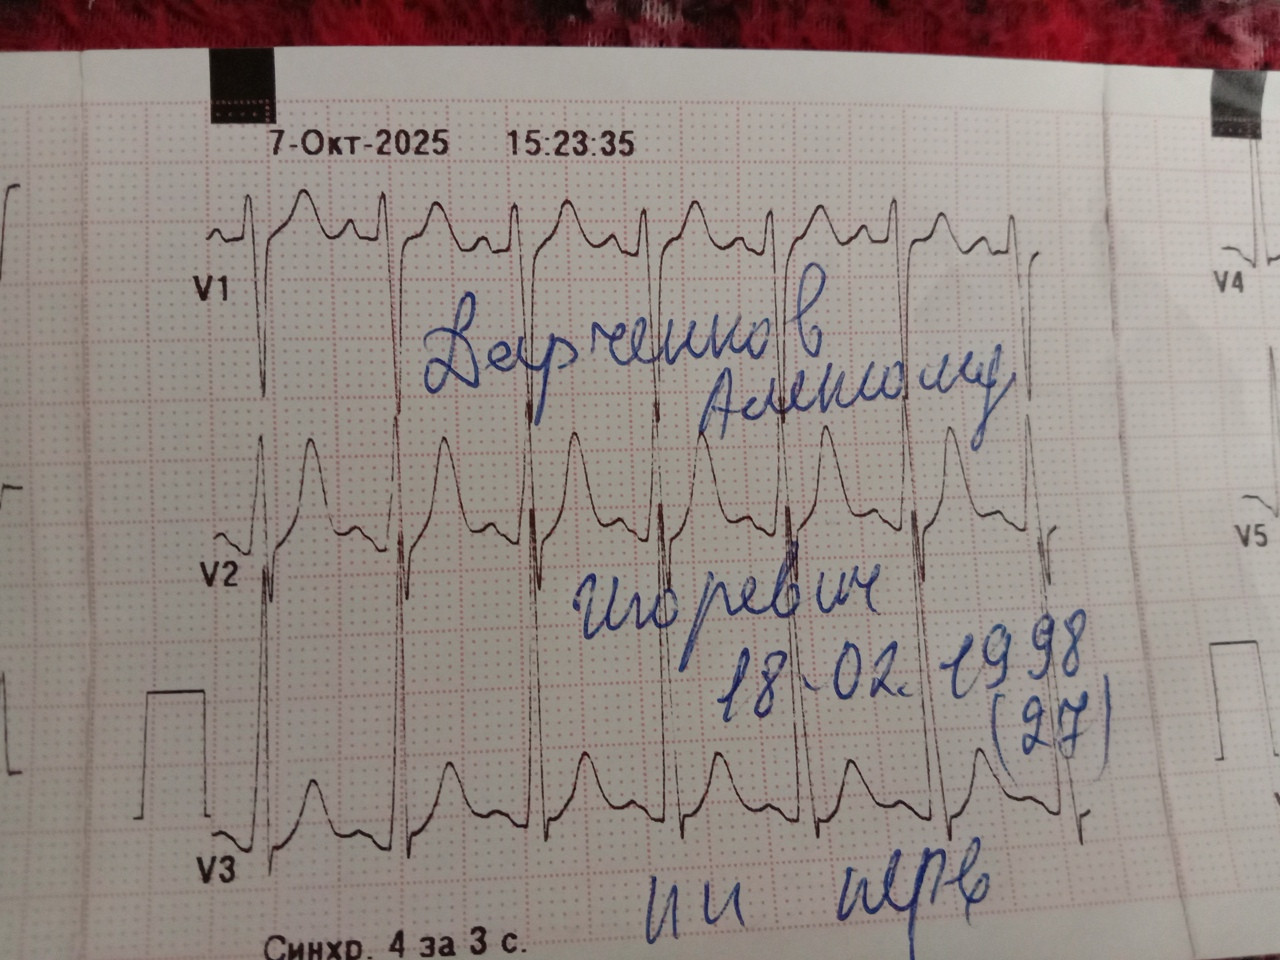 7-Окт-2025 15:23:35
V1
V4
V2
V5
Игоревич
18-02.1998
(27)
V3
Синхр. 4 за 3 с.